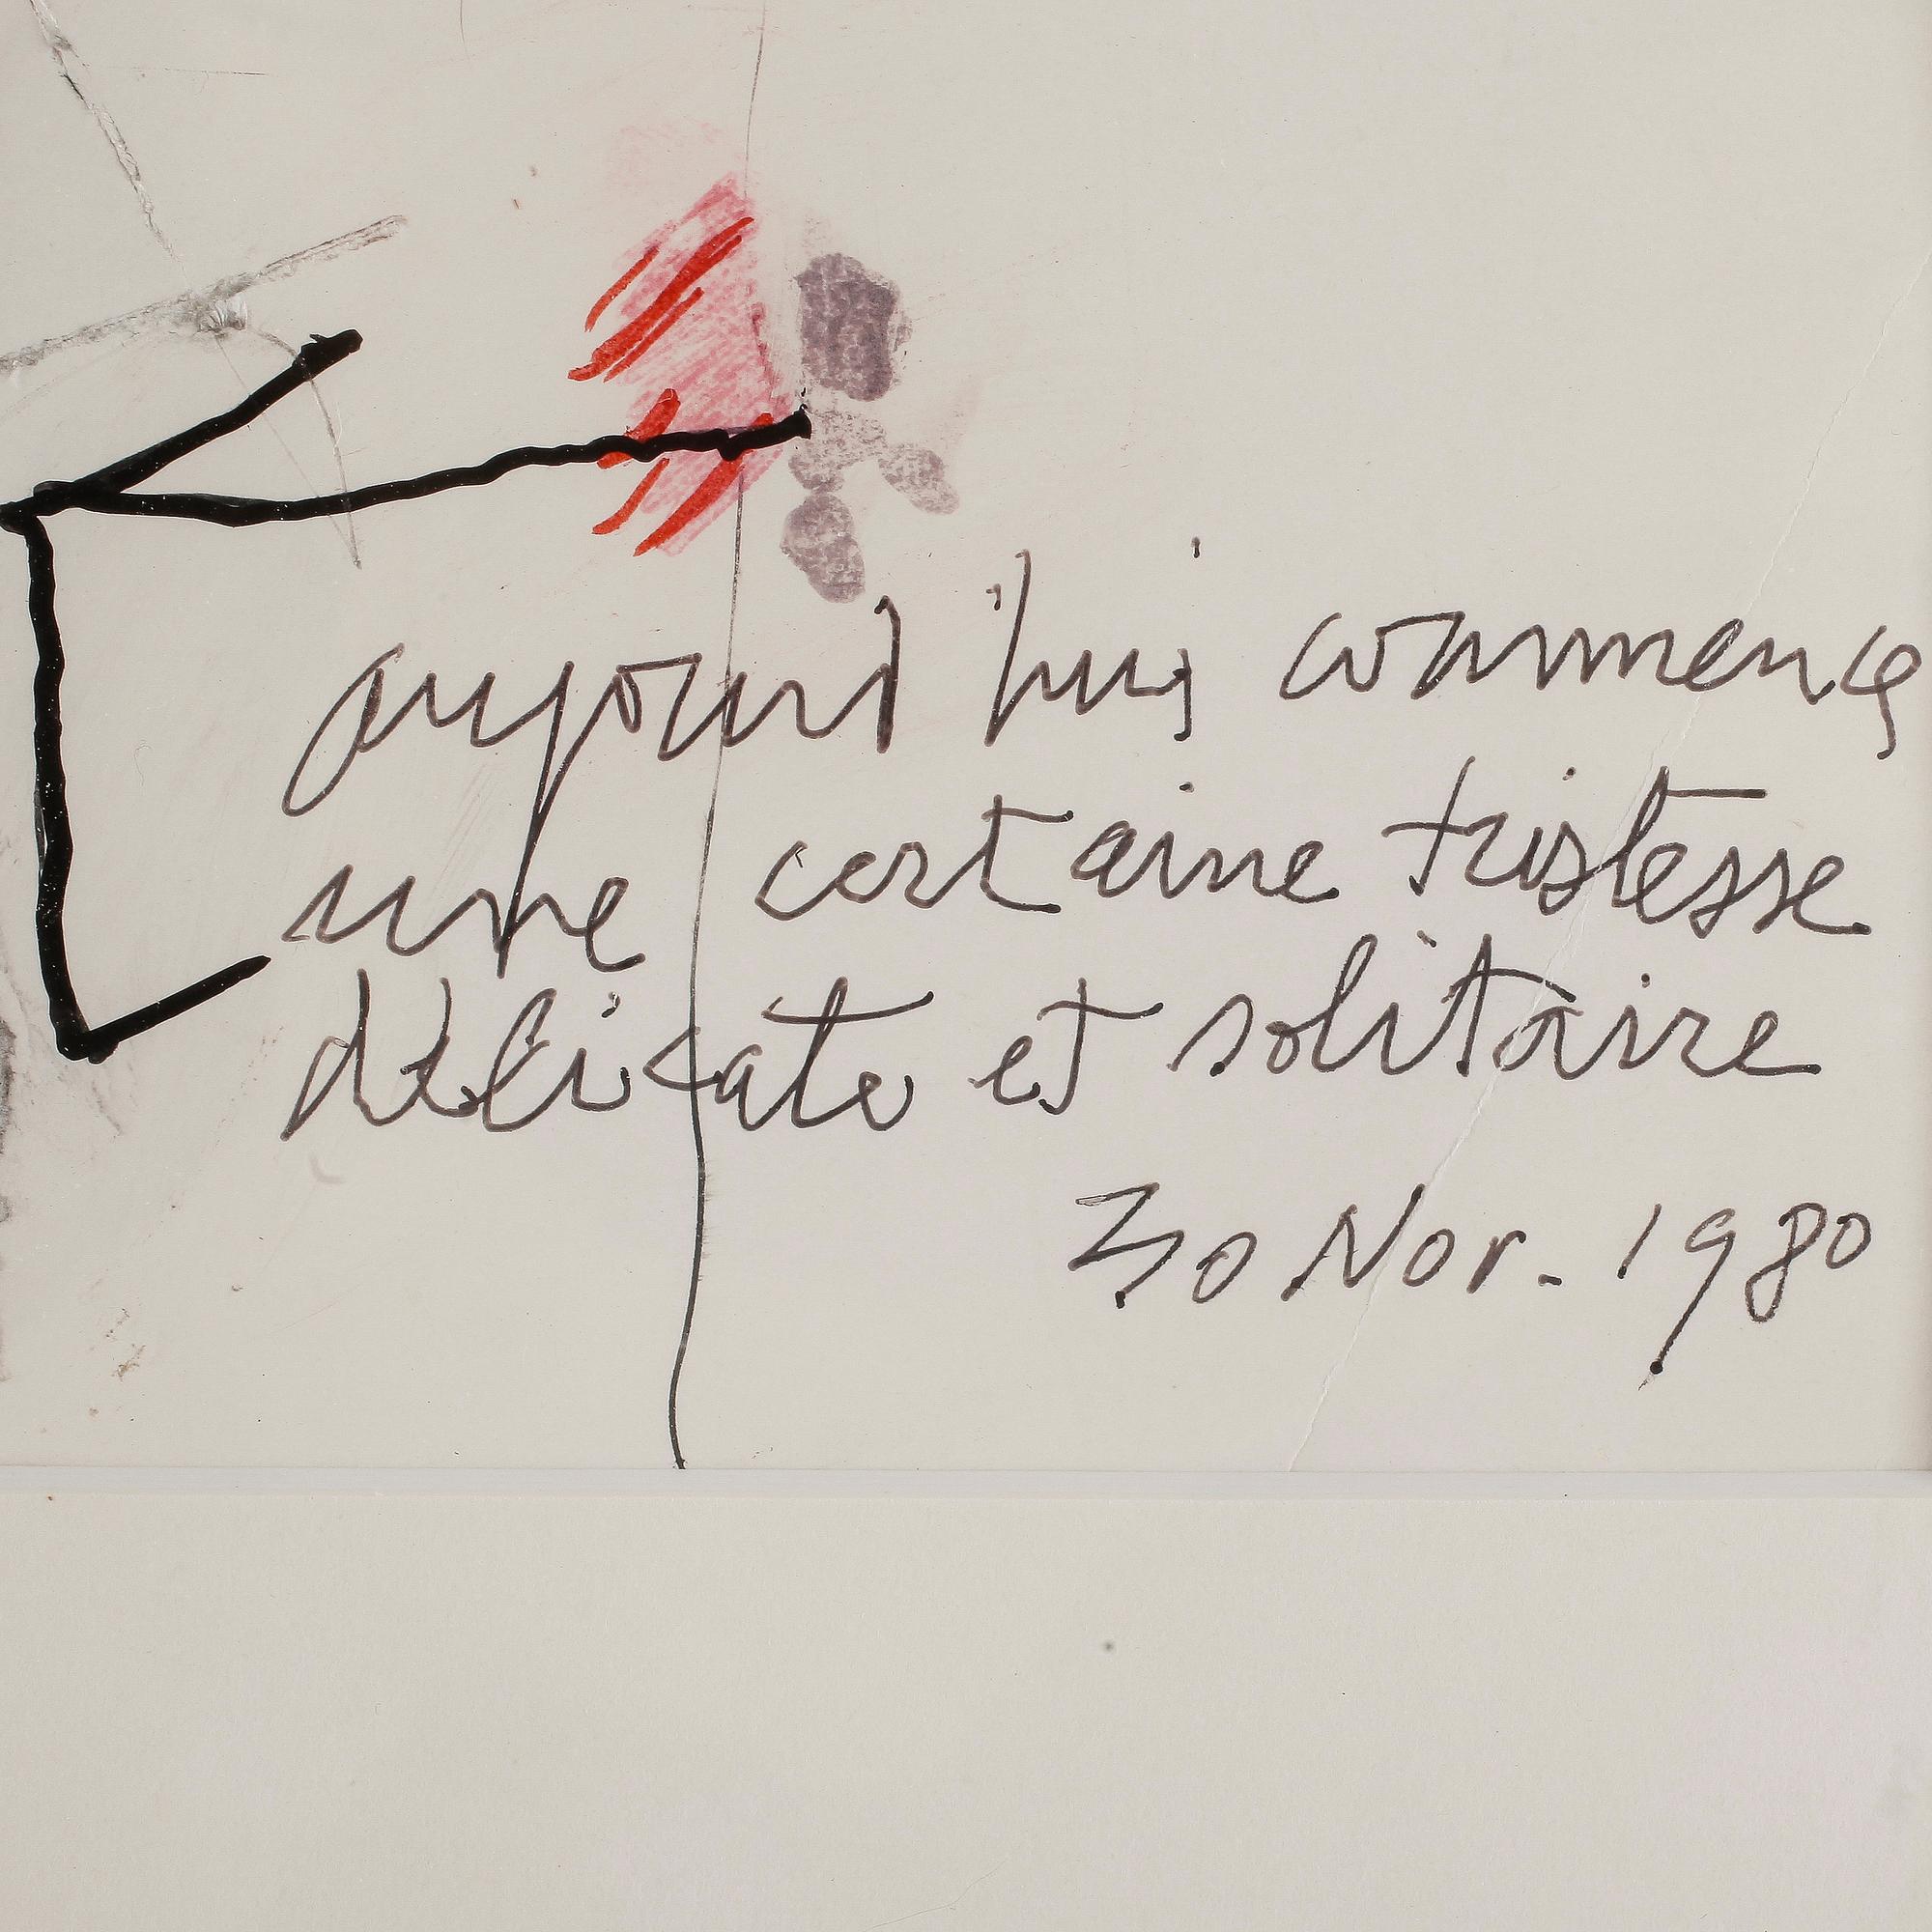 aujourd'hui commence
une certaine tristesse
délicate et solitaire
30 Nov. 1980